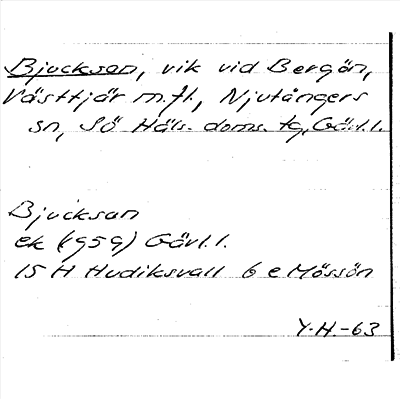 Bjucksan, vik vid Bergön,
Västtjär m.fl., Njutångers
sn, Sö Häls. doms. tg, Gävl.l.
Bjucksan
ek (1959) Gävl.l.
15 H Hudiksvall 6 e Mössön
Y.H.-63